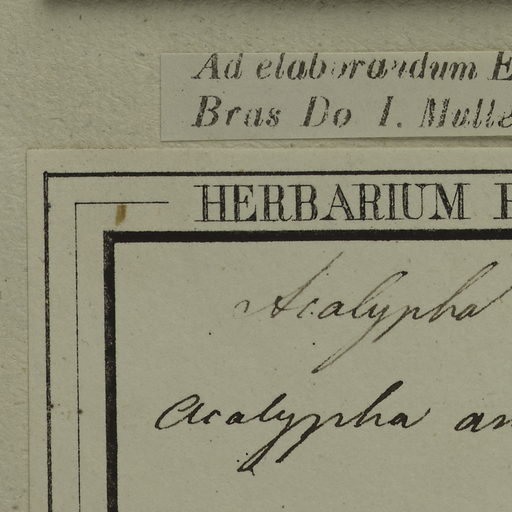 Ad elaborandum
Bras Do I.
HERBARIUM
Acalypha
Acalypha